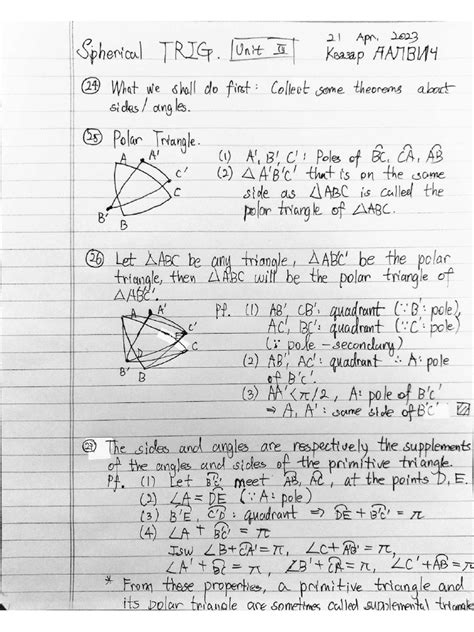 21 Apr. 2023
Spherical TRIG. Unit II
(24) What we shall do first: Collect some theorems about
sides/angles.
(25) Polar Triangle.
(1) A', B', C': Poles of BC, CA, AB
(2) △A'B'C' that is on the same
side as △ABC is called the
polar triangle of △ABC.
A A' C' C B' B
(26) Let △ABC be any triangle, △A'B'C' be the polar
triangle, then △ABC will be the polar triangle of
△A'B'C'.
Pf. (1) AB', CB': quadrant (∵B': pole),
AC', BC': quadrant (∵C': pole)
(∵ pole - secondary)
(2) AB', AC': quadrant ∴ A: pole
of B'C'.
(3) AA' < π/2, A: pole of B'C'
⇒ A, A': same side of B'C'
A A' C' C D B' B
(27) The sides and angles are respectively the supplements
of the angles and sides of the primitive triangle.
Pf. (1) Let B'C' meet AB, AC, at the points D, E.
(2) ∠A = DE (∵ A: pole)
(3) B'E, C'D: quadrant ⇒ DE + B'C' = π
(4) ∠A + B'C' = π
Isw ∠B + C'A' = π, ∠C + A'B' = π
∠A' + BC = π, ∠B' + CA = π, ∠C' + AB = π
* From these properties, a primitive triangle and
its polar triangle are sometimes called supplemental triangles